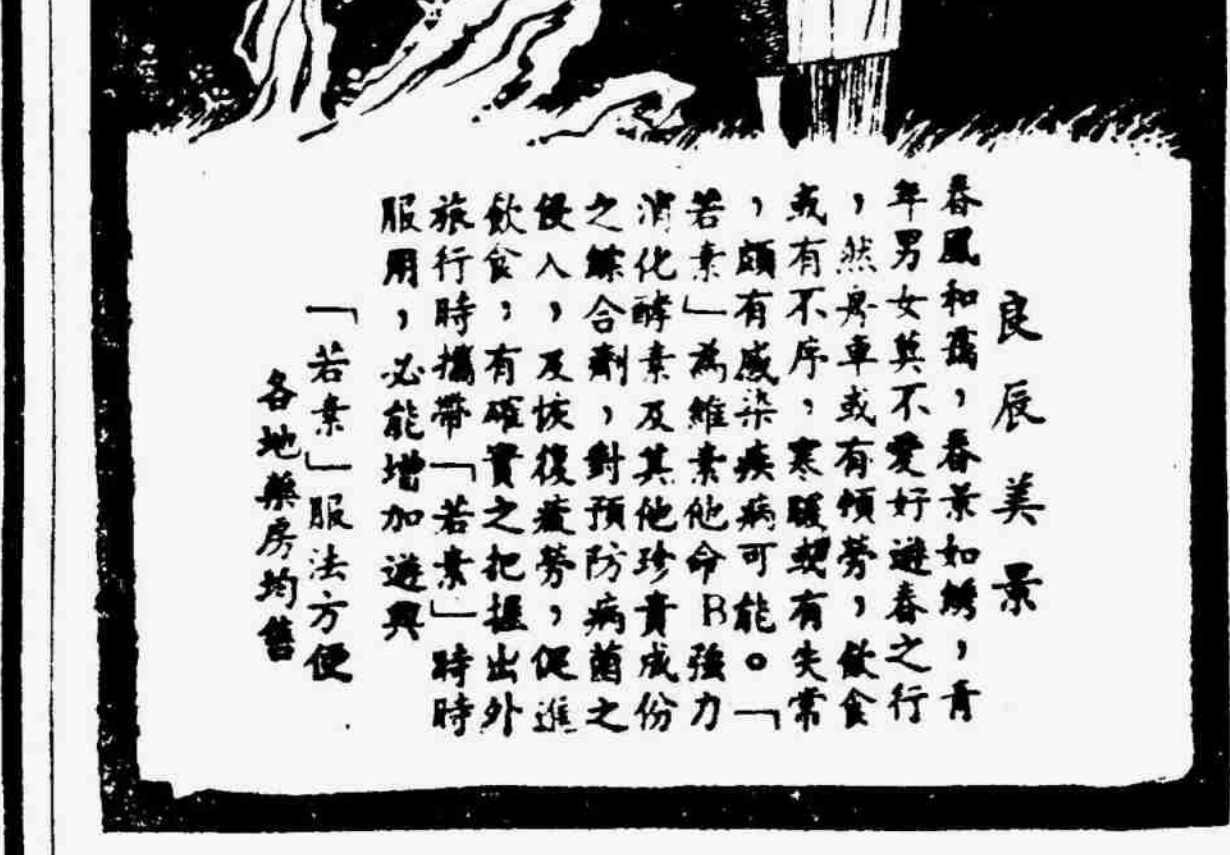 良辰美景
春風和靄，春景如綉，青
年男女莫不愛好遊春之行
，然舟車或有頓勞，飲食
或有不序，寒暖或有失常
，頗有感染疾病可能。「
若素」為維素他命B強力
消化酵素及其他珍貴成份
之綜合劑，對預防病菌之
侵入，及恢復疲勞，促進
飲食，有確實之把握出外
旅行時攜帶「若素」時時
服用，必能增加遊興
「若素」服法方便
各地藥房均售